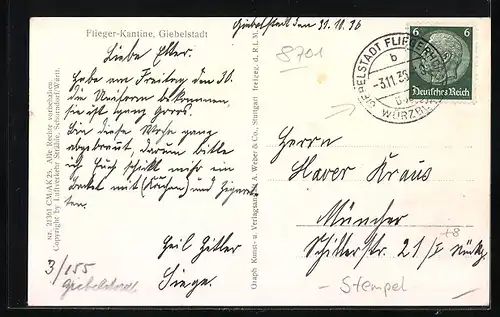 Flieger-Kantine, Giebelstadt
Giebelstadt den 31.10.36
8701
GIEBELSTADT FLIEGERHORST
b
-3.11.36
WÜRZBURG
6 6
Deutsches Reich
Liebe Elter.
Habe am Freitag den 30.
die Uniform bekommen,
sie ist ganz
Bin diese Woche ganz
abgebrannt, darum bitte
ich Euch schickt mir ein
Paket mit (Kuchen) und Zigaret-
ten.
Heil Hitler
3/155
Giebelstadt
nr. 21361 CM/AK 25. Alle Rechte vorbehalten
Copyright by Luftverkehr Strähle, Schorndorf/Württ.
Graph Kunst- u. Verlagsanst. A. Weber & Co., Stuttgart freigeg. d. R.L.M.
Herrn
Xaver Kraus
München
21/I Rückg.
+8
- Stempel